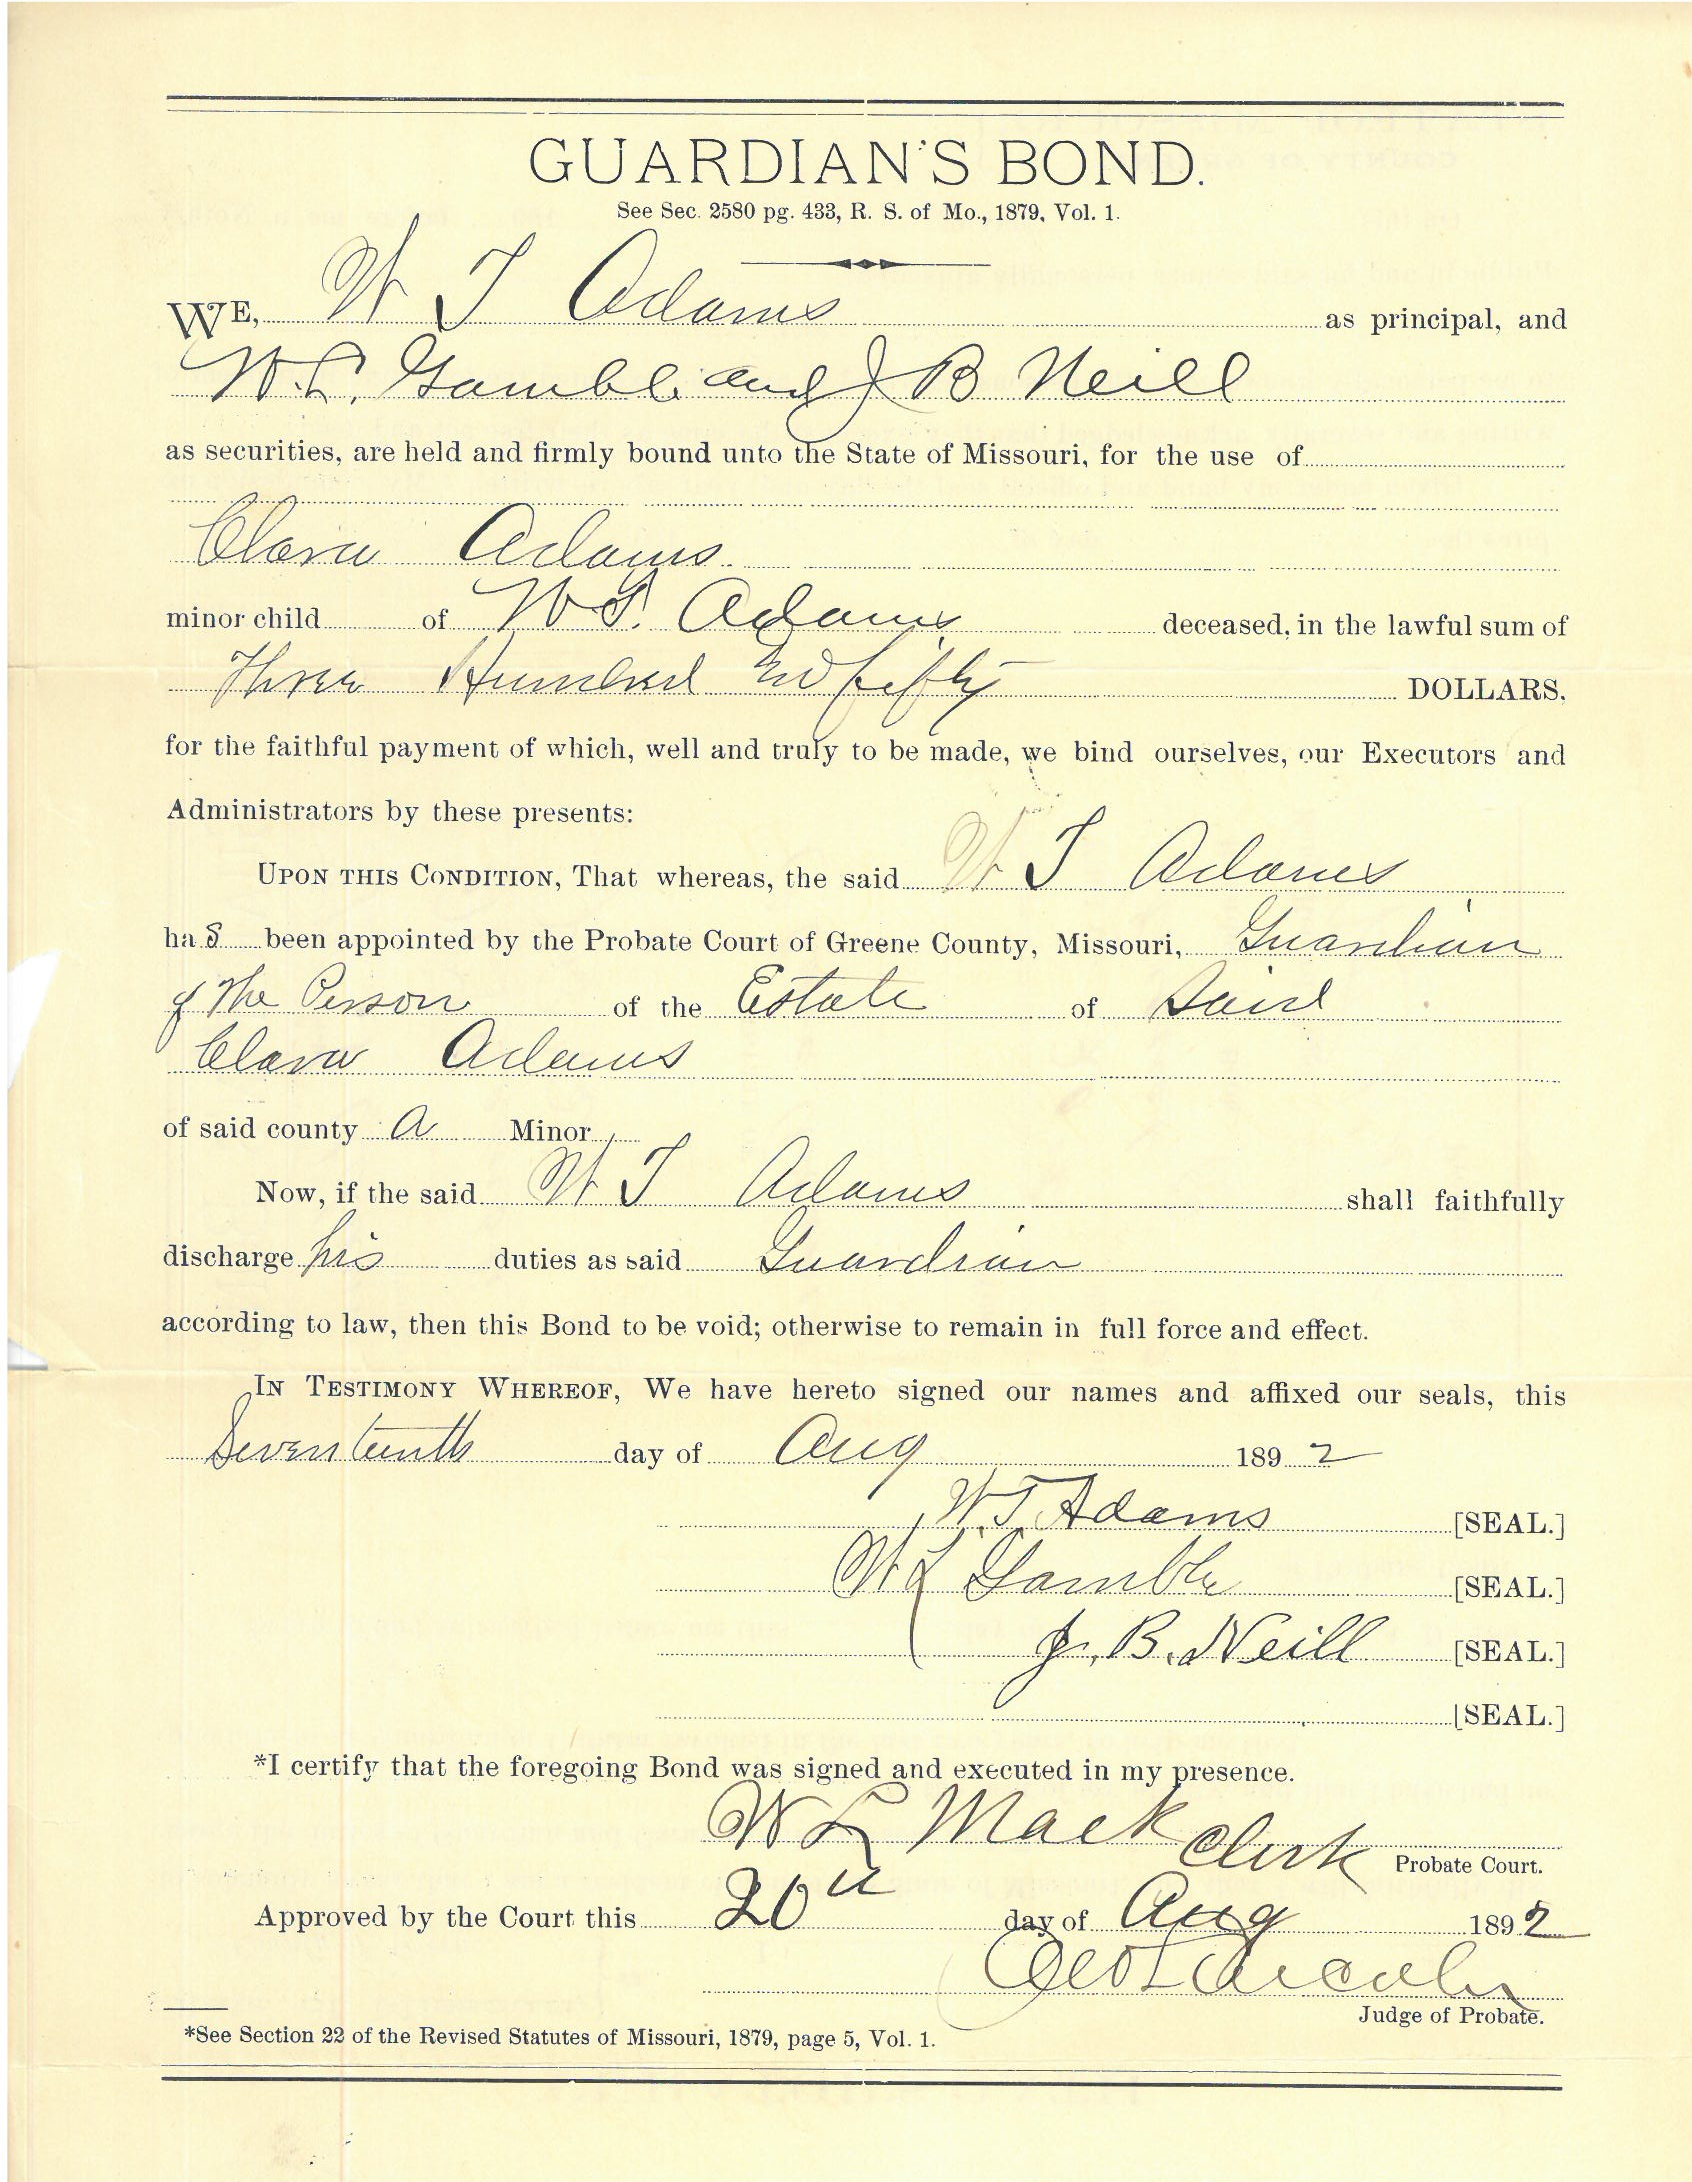 GUARDIAN'S BOND.
See Sec. 2580 pg. 433, R. S. of Mo., 1879, Vol. 1.
WE, W T Adams as principal, and
W. L. Gamble and J B Neill
as securities, are held and firmly bound unto the State of Missouri, for the use of
Clara Adams
minor child of W. T. Adams deceased, in the lawful sum of
Three Hundred and fifty DOLLARS,
for the faithful payment of which, well and truly to be made, we bind ourselves, our Executors and
Administrators by these presents:
UPON THIS CONDITION, That whereas, the said W T Adams
has been appointed by the Probate Court of Greene County, Missouri, Guardian
of the Person of the Estate of Said
Clara Adams
of said county a Minor
Now, if the said W T Adams shall faithfully
discharge his duties as said Guardian
according to law, then this Bond to be void; otherwise to remain in full force and effect.
IN TESTIMONY WHEREOF, We have hereto signed our names and affixed our seals, this
Seventeenth day of Aug 1892
W. T. Adams [SEAL.]
W L Gamble [SEAL.]
J. B. Neill [SEAL.]
[SEAL.]
*I certify that the foregoing Bond was signed and executed in my presence.
W L Mack Clerk Probate Court.
Approved by the Court this 20th day of Aug 1892
Geo
Judge of Probate.
*See Section 22 of the Revised Statutes of Missouri, 1879, page 5, Vol. 1.